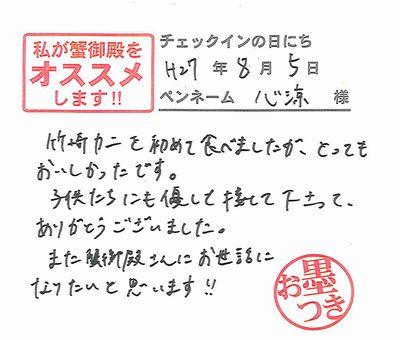 私が蟹御殿を
オススメ
します!!
チェックインの日にち
H27年8月5日
ペンネーム 心涼 様
竹崎カニを初めて食べましたが、とっても
おいしかったです。
子供たちにも優しく接して下さって、
ありがとうございました。
また蟹御殿さんにお世話に
なりたいと思います!!
お墨つき